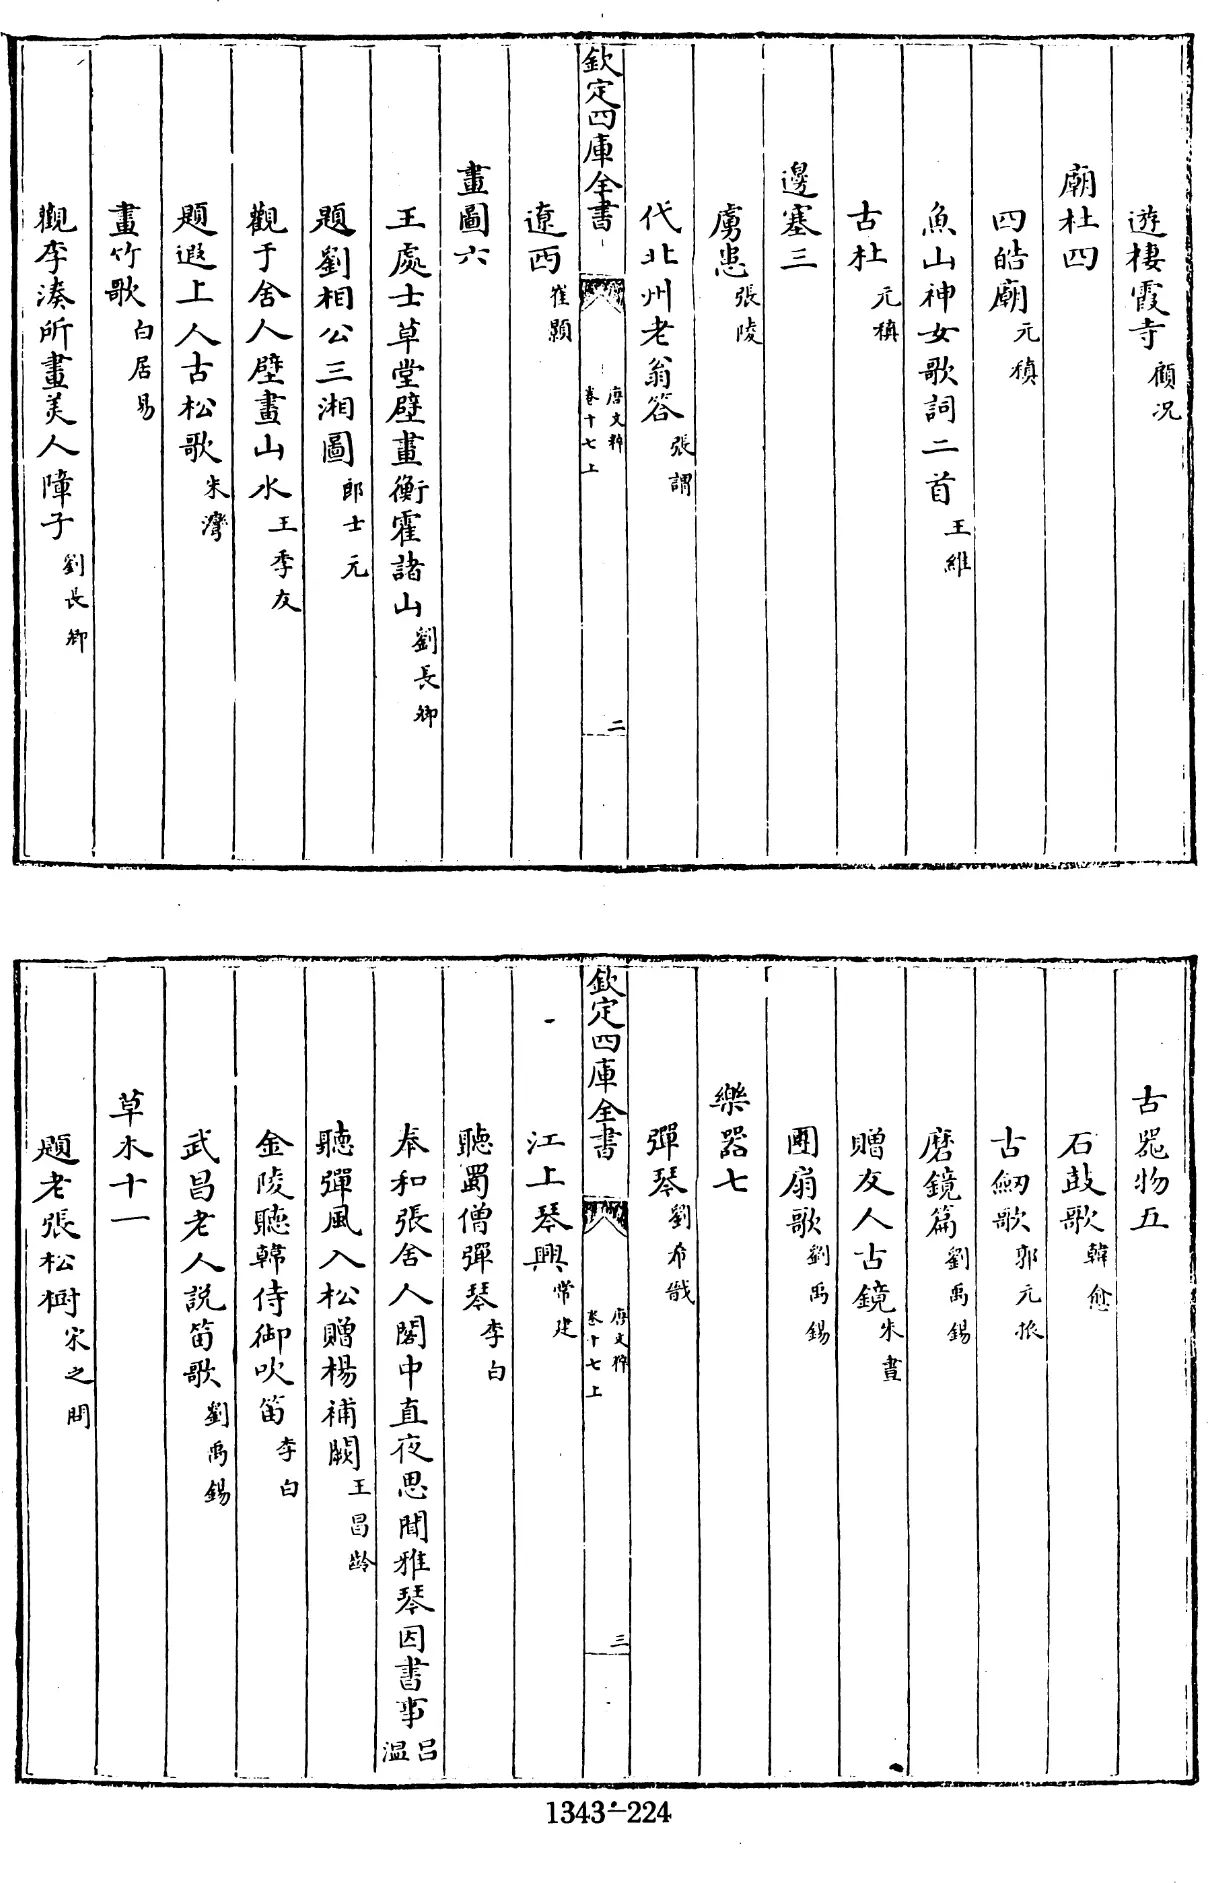 遊棲霞寺顧況
廟社四
四皓廟元稹
魚山神女歌詞二首王維
古社元稹
邊塞三
虜患張陵
代北州老翁答張謂
欽定四庫全書
唐文粹
卷十七上
二
遼西崔顥
畫圖六
王處士草堂壁畫衡霍諸山劉長卿
題劉相公三湘圖郎士元
觀于舍人壁畫山水王季友
題遐上人古松歌朱灣
畫竹歌白居易
觀李湊所畫美人障子劉長卿
古器物五
石鼓歌韓愈
古劒歌郭元振
磨鏡篇劉禹錫
贈友人古鏡朱晝
團扇歌劉禹錫
樂器七
彈琴劉希戩
欽定四庫全書
唐文粹
卷十七上
三
江上琴興常建
聽蜀僧彈琴李白
奉和張舍人閣中直夜思聞雅琴因書事吕温
聽彈風入松贈楊補闕王昌齡
金陵聽韓侍御吹笛李白
武昌老人説笛歌劉禹錫
草木十一
題老張松樹宋之問
1343-224